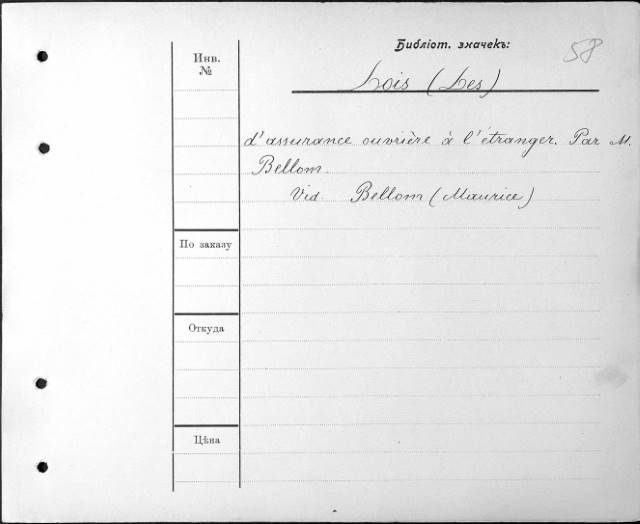 Библіот. значекъ:
58
Инв.
№
Lois (Les)
d'assurance ouvrière à l'étranger. Par M.
Bellom.
Vid Bellom (Maurice)
По заказу
Откуда
Цѣна